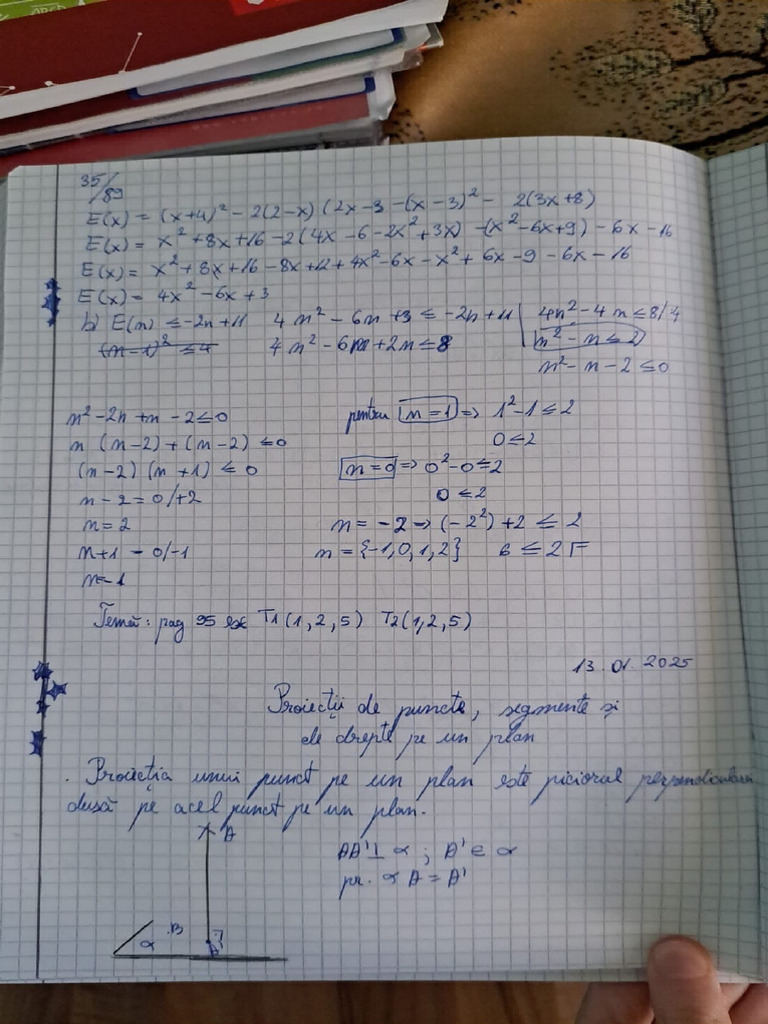 35/89
E(x) = (x+4)² - 2(2-x)(2x-3 -(x-3)² - 2(3x+8)
E(x) = x² + 8x+16 -2(4x -6 -2x²+3x) -(x²-6x+9) - 6x -16
E(x) = x² + 8x + 16 - 8x + 12 + 4x² - 6x - x² + 6x - 9 - 6x - 16
E(x) = 4x² - 6x + 3
b) E(n) ≤ -2n + 11 4n² - 6n + 3 ≤ -2n + 11 | 4n² - 4n ≤ 8/4
(n-1)² ≤ 4 4n² - 6n + 2n ≤ 8 n² - n ≤ 2
n² - n - 2 ≤ 0
n² - 2n + n - 2 ≤ 0 pentru n = 1 => 1² - 1 ≤ 2
n (n-2) + (n-2) ≤ 0 0 ≤ 2
(n-2)(n+1) ≤ 0 n = 0 => 0² - 0 ≤ 2
n - 2 = 0/+2 0 ≤ 2
n = 2 n = -2 → (-2²) + 2 ≤ 2
n+1 = 0/-1 n = {-1,0,1,2} 6 ≤ 2 F
n = -1
Temă: pag 95 ex T1 (1, 2, 5) T2 (1,2,5)
13.01.2025
Proiecții de puncte, segmente și
de drepte pe un plan
. Proiecția unui punct pe un plan este piciorul perpendicularei
dusă pe acel punct pe un plan.
A
AA' ⊥ α ; A' ∈ α
pr. α A = A'
.B
α A'